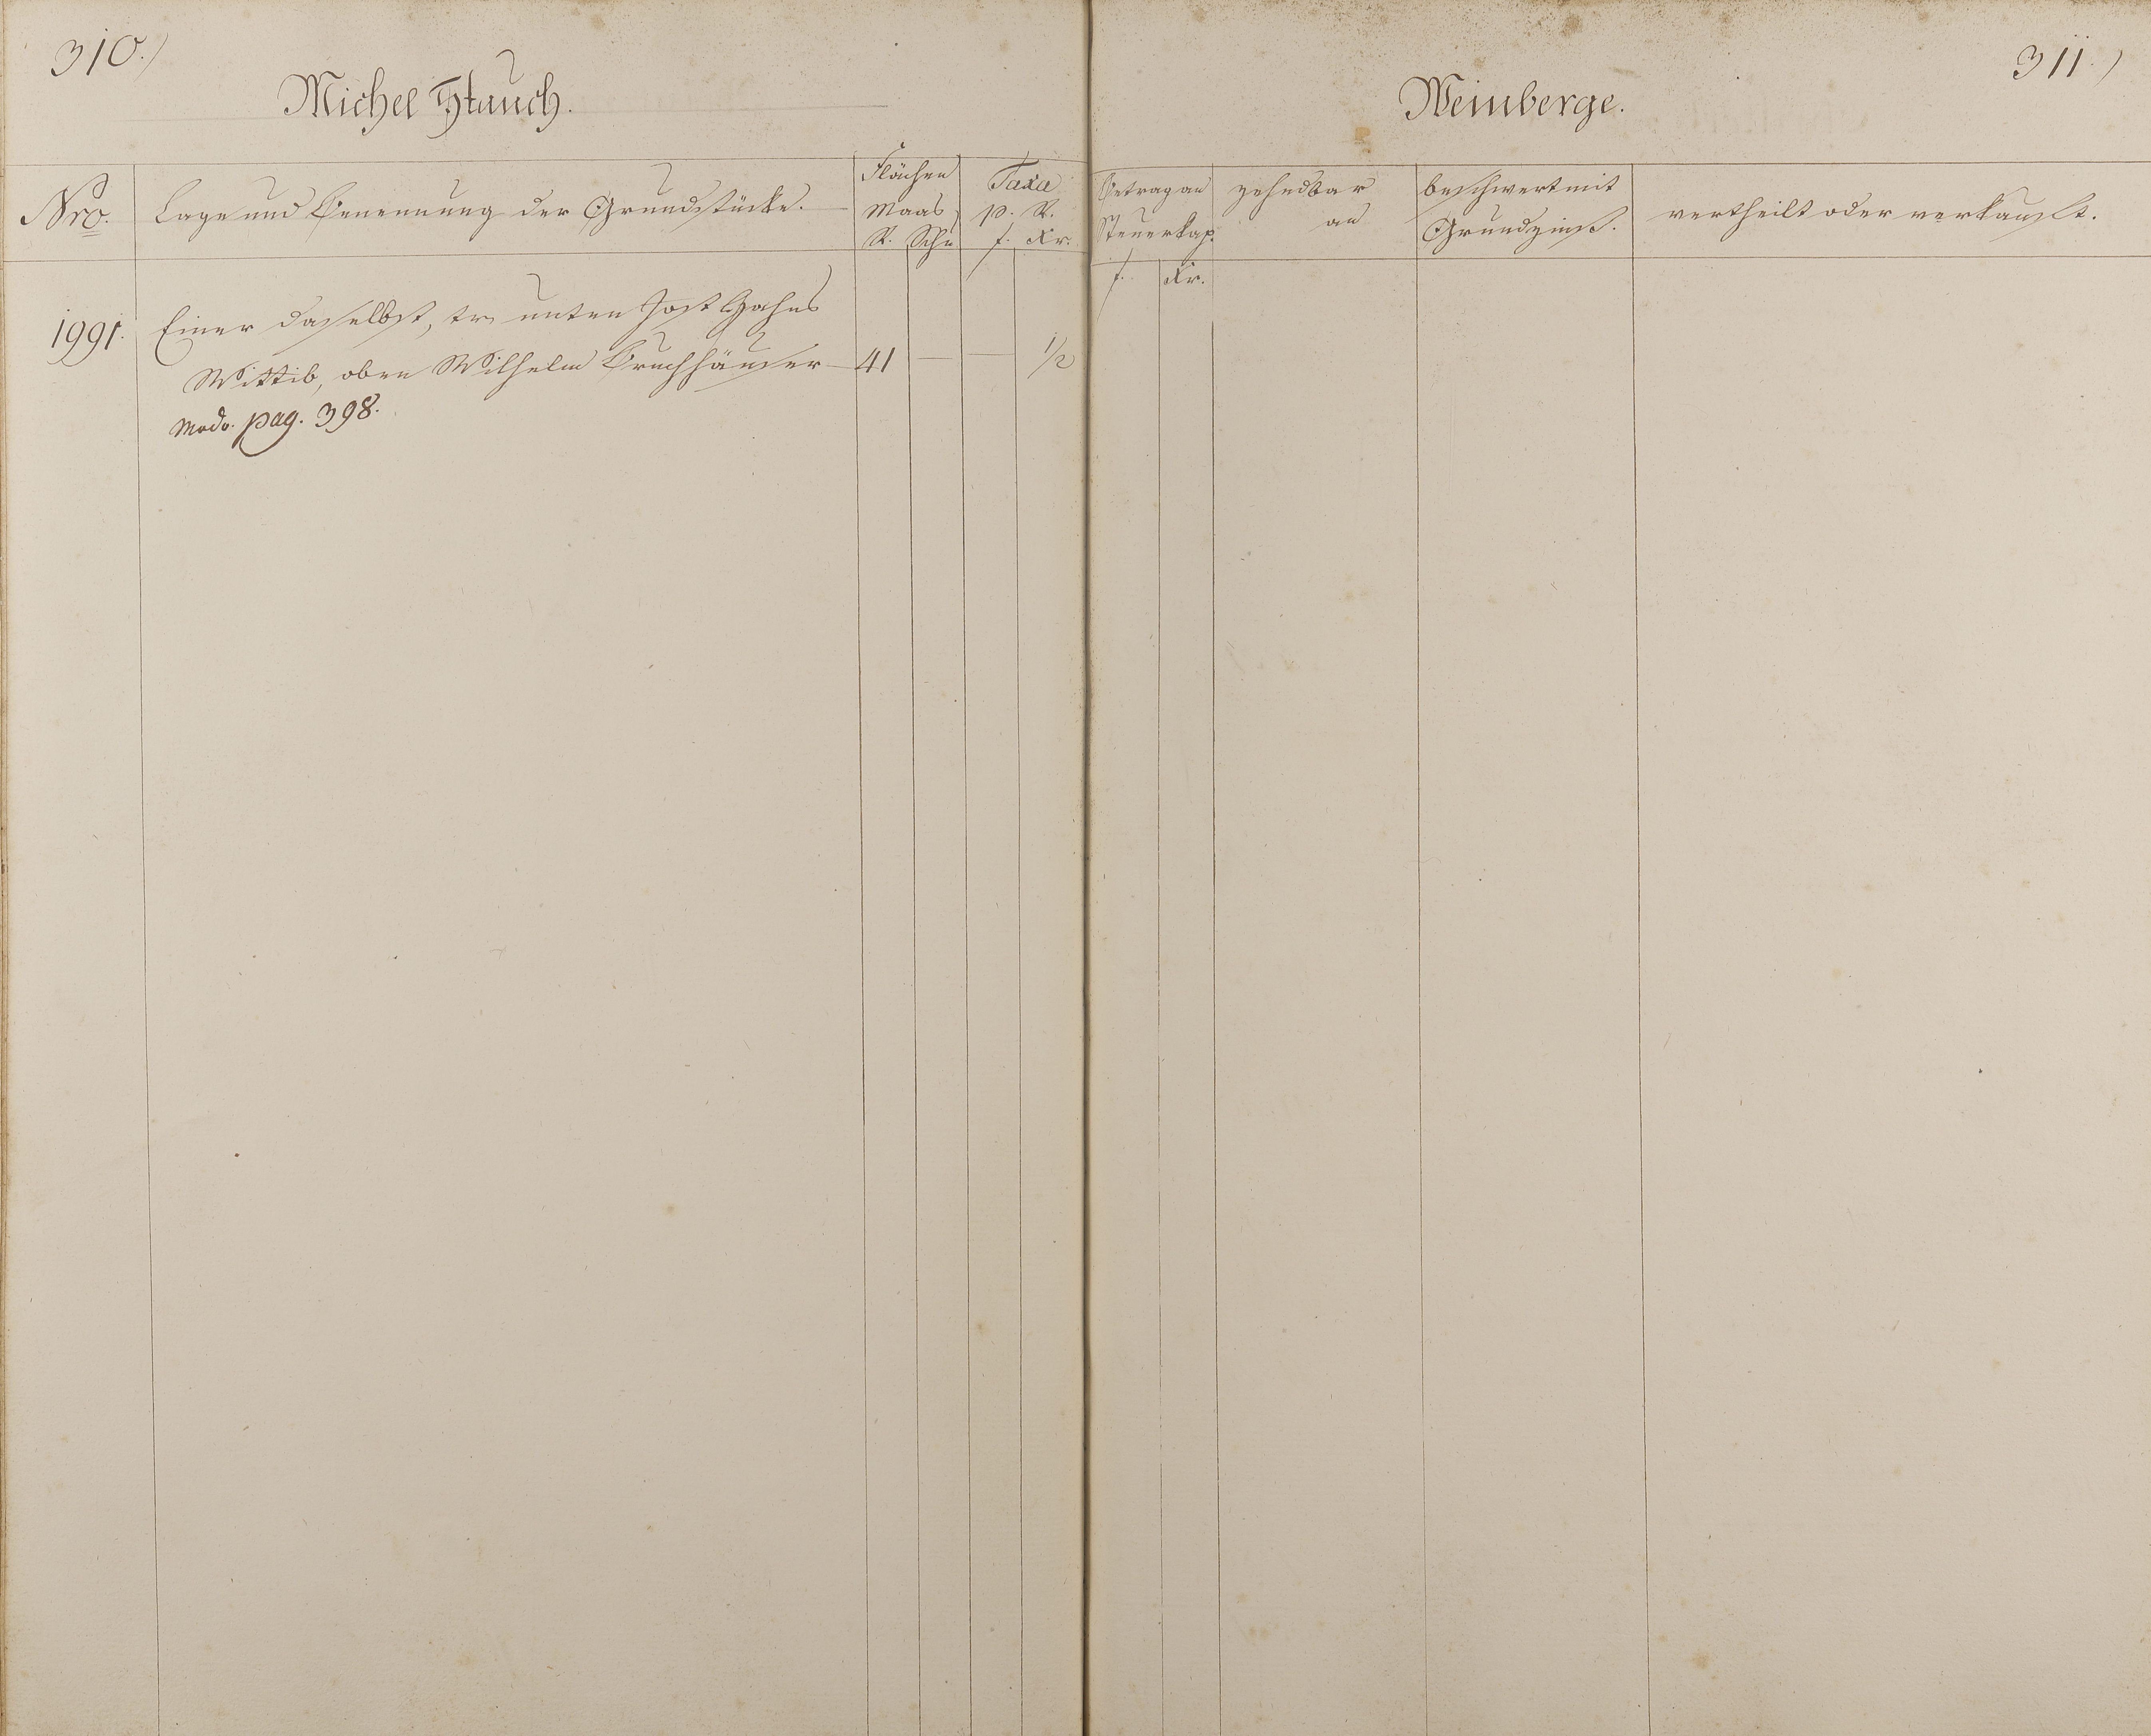 310.)
Michel Stauch.
Nro.
Lage und Benennung der Grundstücke.
Flächen
Maas
R. Schu
Taxa
p. R.
f. Xr.
1991.
Einer daselbst, tr. unten Jost Hahns
Wittib, oben Wilhelm Bruchhäuser — 41 — — 1/2
modo. pag. 398.
311.)
Weinberge.
Betrag an
Steuerkap.
f. Xr.
zehndbar
an
beschwert mit
Grundzinß.
vertheilt oder verkauft.